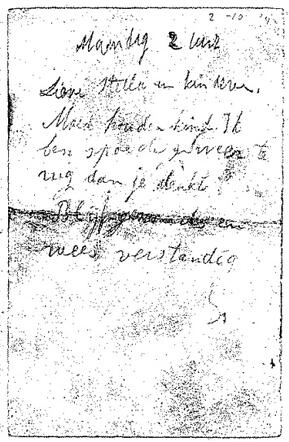 2-10
Maandag 2 uur
Lieve en kinderen.
Moed houden kind. Ik
ben spoediger weer te
rug dan je denkt.
Blijf en
wees verstandig